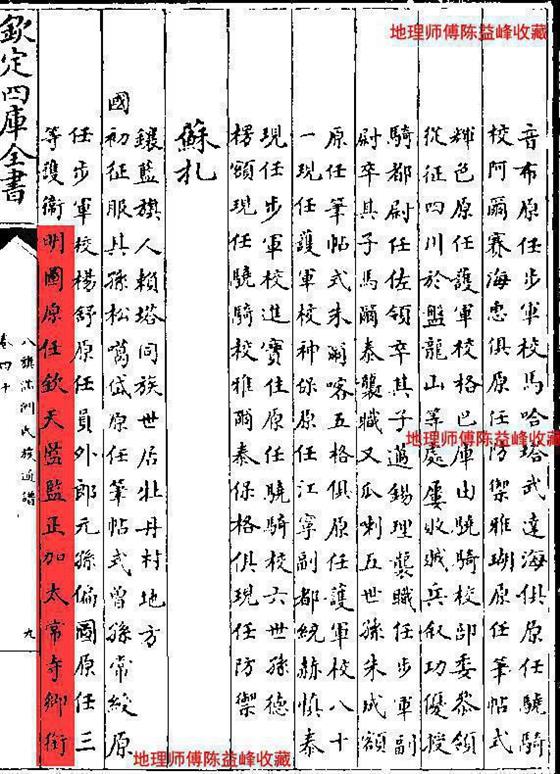 地理师傅陈益峰收藏
音布原任步軍校馬哈塔武達海俱原任驍騎
校阿爾賽海忠俱原任防禦雅瑚原任筆帖式
輝色原任護軍校格巴庫由驍騎校部委叅領
從征四川於盤龍山等處屢敗賊兵叙功優授
騎都尉任佐領卒其子邁錫理襲職任步軍副
尉卒其子馬爾泰襲職又瓜喇五世孫朱成額
原任筆帖式朱爾喀五格俱原任護軍校八十
一現任護軍校神保原任江寧副都統赫慎泰
現任步軍校進寶住原任驍騎校六世孫德
楞額現任驍騎校雅爾泰保格俱現任防禦
地理师傅陈益峰收藏
蘇扎
鑲藍旗人賴塔同族世居牡丹村地方
國初征服其孫松噶岱原任筆帖式曾孫常綬原
任步軍校楊舒原任員外郎元孫偏圖原任三
等護衛明圖原任欽天監監正加太常寺卿銜
地理师傅陈益峰收藏
欽定四庫全書
八旗滿洲氏族通譜
卷四十
九